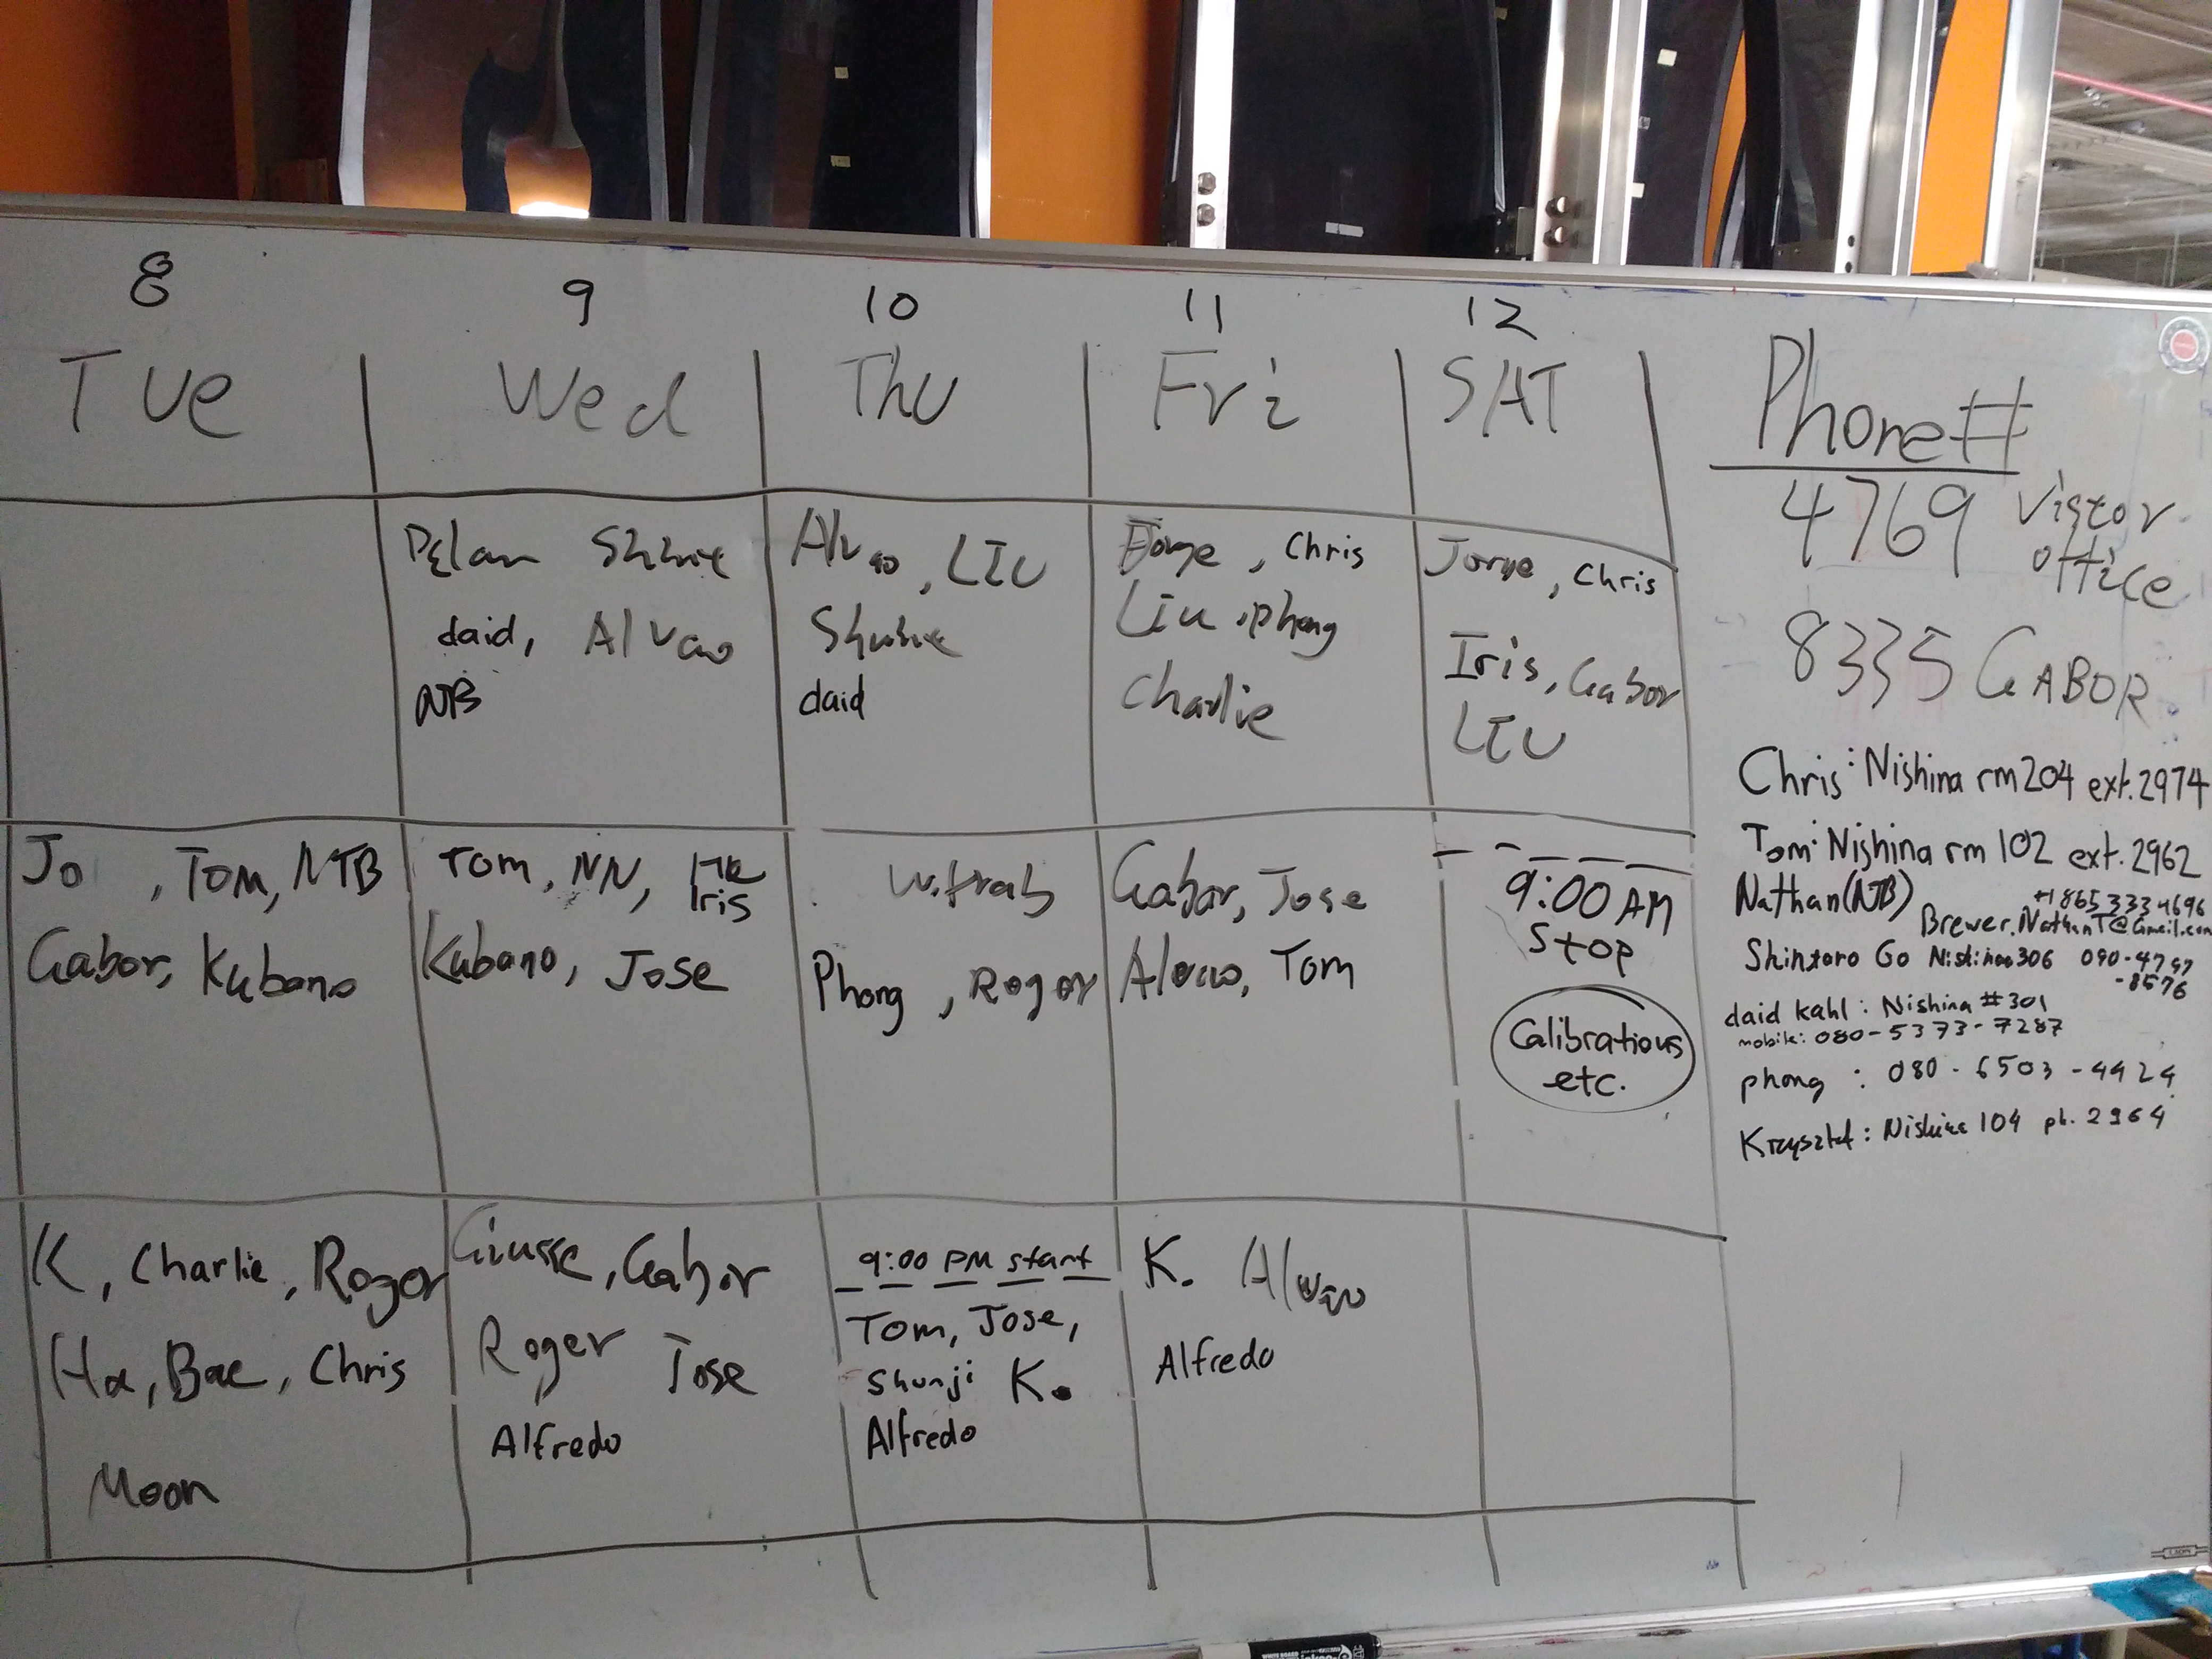 8 9 10 11 12
Tue Wed Thu Fri SAT
daid, Alvaro
NB
LIU
daid
Jorge, Chris
Liu, Phong
Charlie
Jorge, Chris
Iris, Gabor
LIU
Jo , Tom, NTB
Gabor, Kubono
Tom, NN,
Iris
Kubono, Jose
Phong, Roger
Gabor, Jose
Alvaro, Tom
9:00 AM
Stop
Calibrations
etc.
K, Charlie, Roger
Ha, Bae, Chris
Moon
Giusse, Gabor
Roger Jose
Alfredo
9:00 PM start
Tom, Jose,
Shunji K.
Alfredo
K. Alvaro
Alfredo
Phone#
4769 Vistor
office
8335 GABOR
Chris: Nishina rm 204 ext. 2974
Tom: Nishina rm 102 ext. 2962
Nathan (NTB) +1 865 333 4696
Brewer.NathanT@Gmail.com
Shintaro Go Nishina 306 090-4797
-8576
daid kahl: Nishina #301
mobile: 080-5373-7287
phong : 080-6503-4424
Nishina 104 ph. 2964